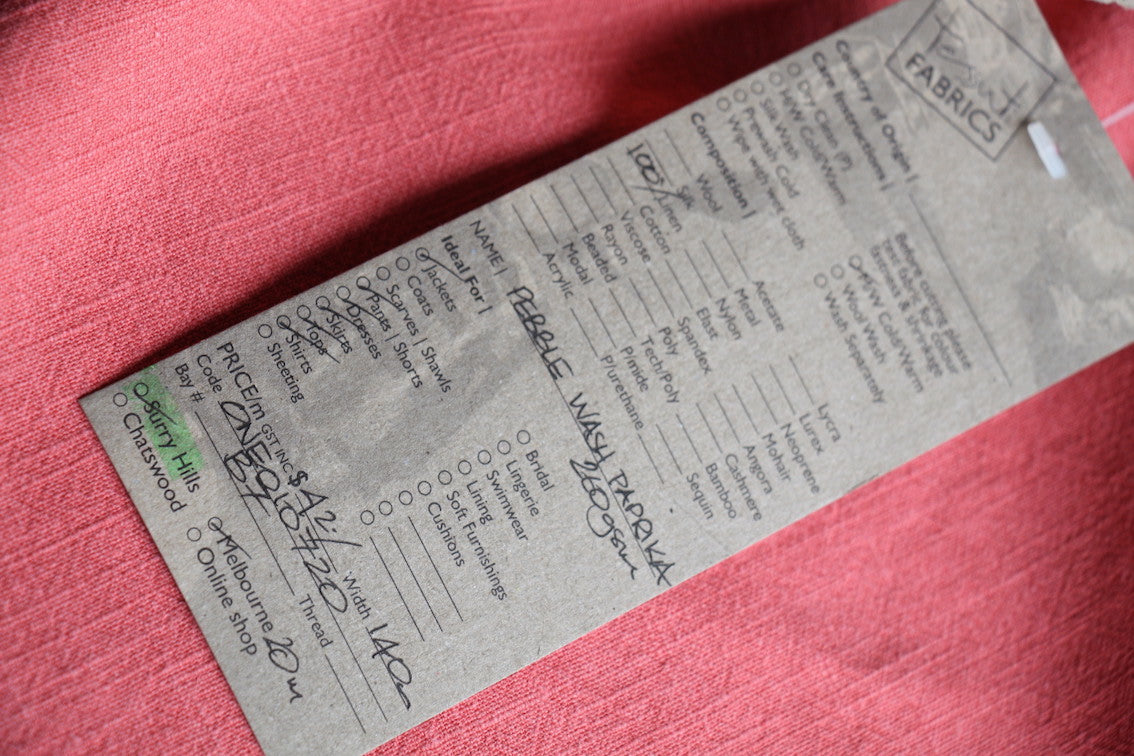 Tessuti
FABRICS
Country of Origin |
Care Instructions |
Dry Clean (P)
M/W Cold/Warm
Silk Wash
Prewash Cold
Wipe with wet cloth
Before cutting please
test fabric for colour
fastness & shrinkage
M/W Cold/Warm
Wool Wash
Wash Separately
Composition |
Wool
Silk
100% Linen
Cotton
Viscose
Rayon
Beaded
Modal
Acrylic
Acetate
Metal
Nylon
Elast
Spandex
Poly
Tech/Poly
P/imide
P/urethane
Lycra
Lurex
Neoprene
Mohair
Angora
Cashmere
Bamboo
Sequin
NAME | PEBBLE WASH PAPRIKA
260gsm
Ideal For |
Jackets
Coats
Scarves | Shawls
Pants | Shorts
Dresses
Skirts
Tops
Shirts
Sheeting
Bridal
Lingerie
Swimwear
Lining
Soft Furnishings
Cushions
PRICE/m GST INC $42
Width 140
Code
Bay #
Thread
Surry Hills
Chatswood
Melbourne 20m
Online shop